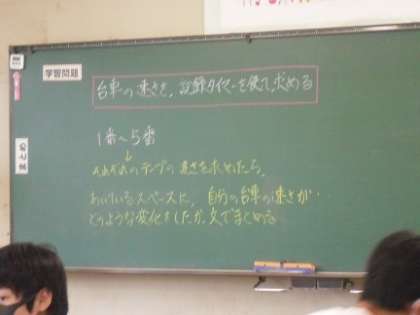 学習問題
台車の速さを、記録タイマーを使って求める
まとめ
1番～5番
↓
それぞれのテープの速さを求めたら、
あいているスペースに、自分の台車の速さが…
どのような変化をしたか、文でまとめる